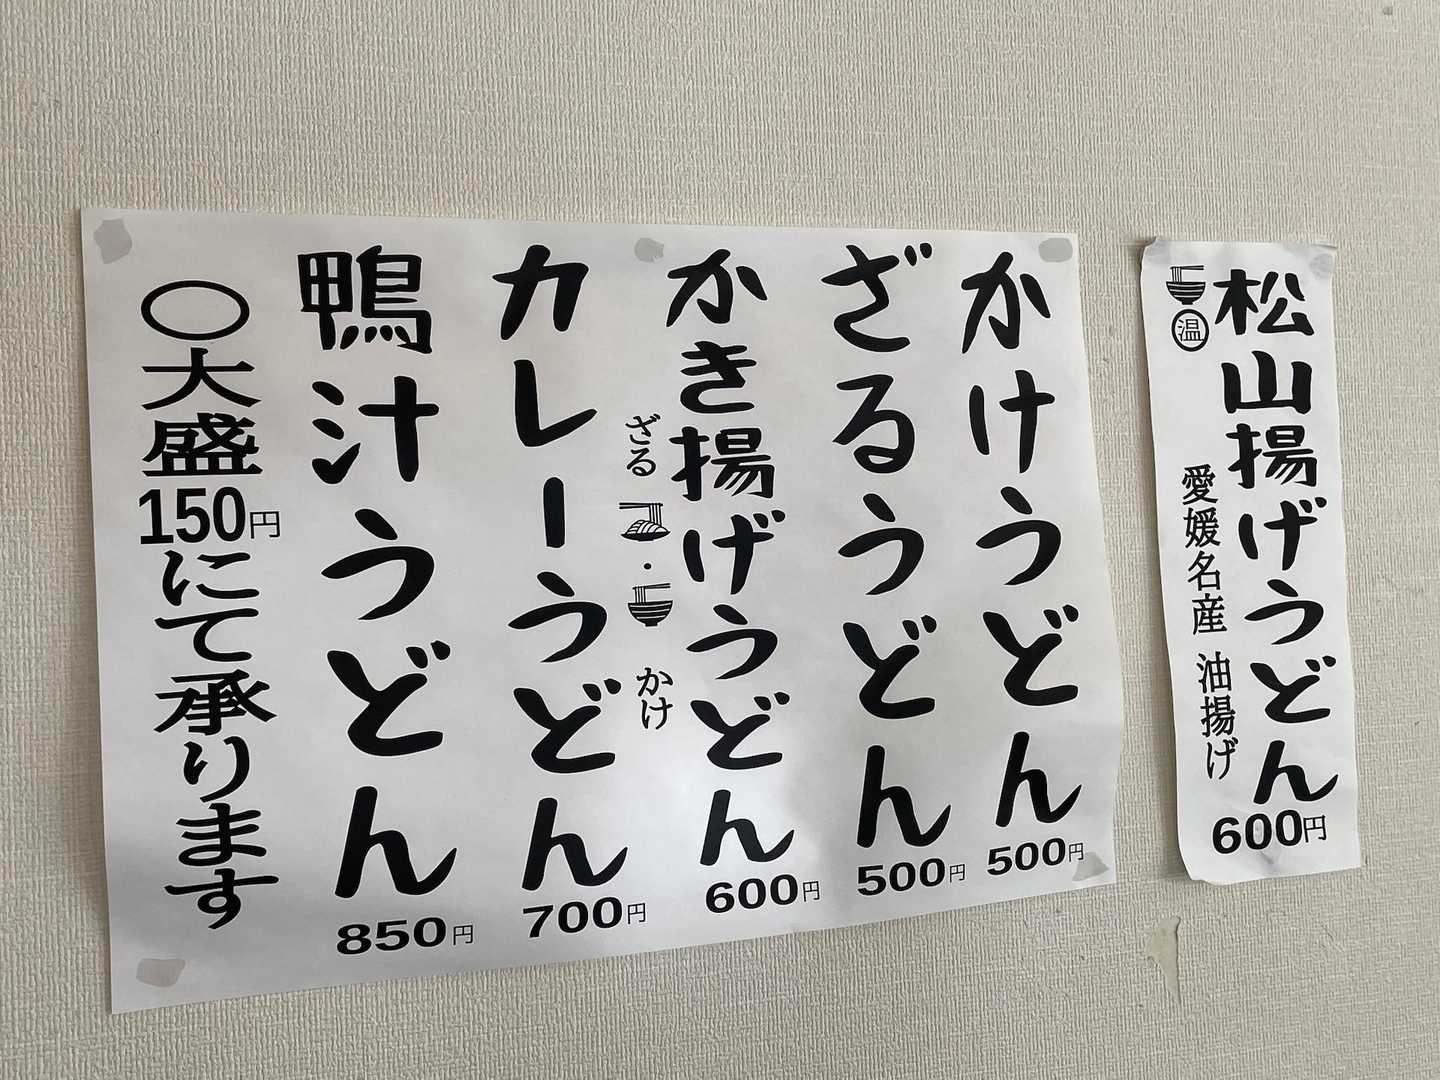 松山揚げうどん
600円
温
愛媛名産 油揚げ
かけうどん
500円
ざるうどん
500円
かき揚げうどん
600円
ざる・かけ
カレーうどん
700円
鴨汁うどん
850円
○大盛150円にて承ります